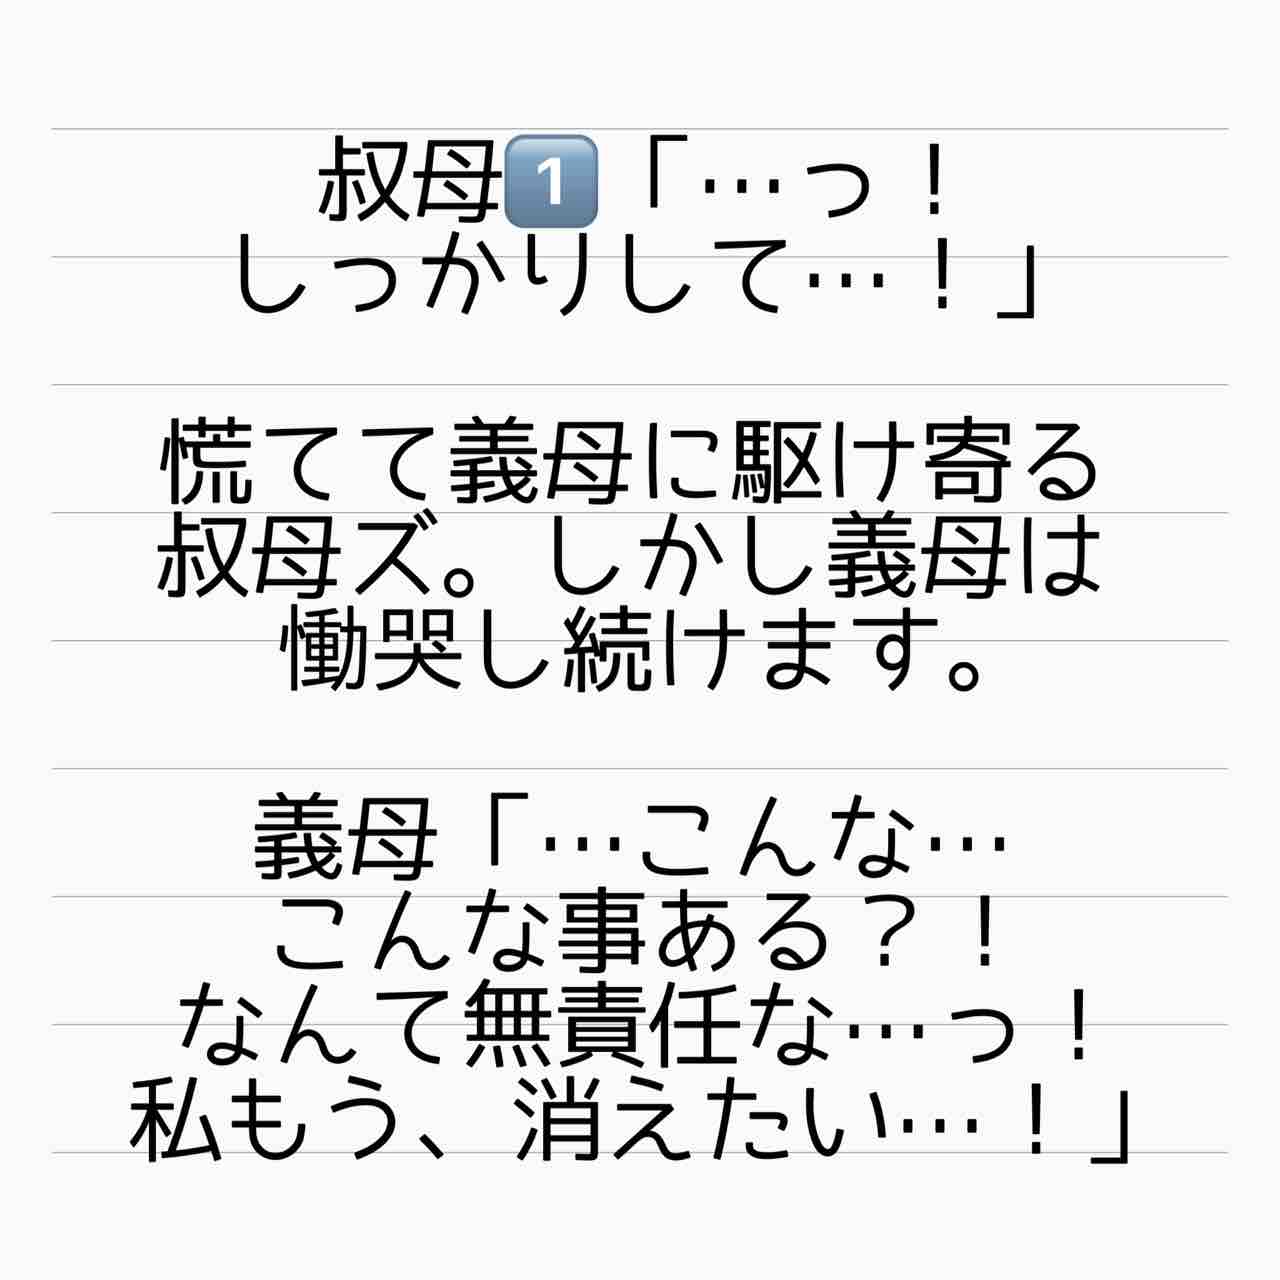 叔母1️⃣「…っ！
しっかりして…！」
慌てて義母に駆け寄る
叔母ズ。しかし義母は
慟哭し続けます。
義母「…こんな…
こんな事ある？！
なんて無責任な…っ！
私もう、消えたい…！」